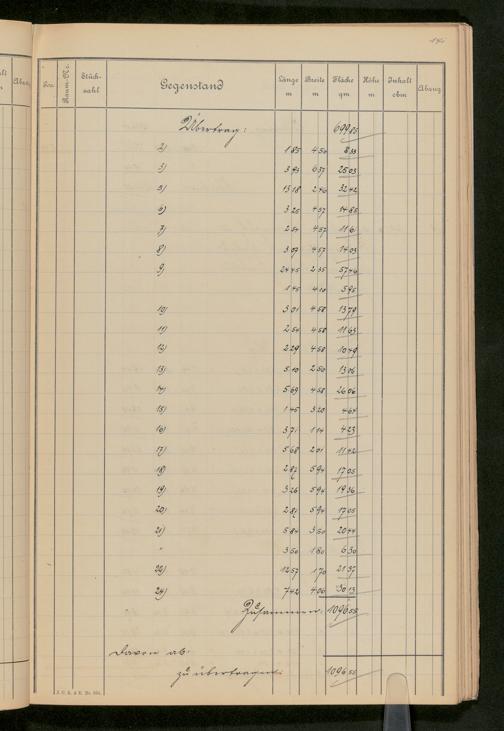 Pos.
Raum-Nr.
Stück-
zahl
Gegenstand
Länge
m
Breite
m
Fläche
qm
Höhe
m
Inhalt
cbm
Abzug
Übertrag: 699 85
2) 1 85 4 50 8 33
3) 3 93 6 37 25 03
5) 13 18 2 46 32 42
6) 3 25 4 57 14 85
7) 2 54 4 57 11 61
8) 3 07 4 57 14 03
9) 24 45 2 35 57 46
1 45 4 10 5 95
10) 3 01 4 58 13 79
11) 2 54 4 58 11 63
12) 2 29 4 58 10 49
13) 5 10 2 56 13 06
14) 5 69 4 58 26 06
15) 1 45 3 20 4 64
16) 3 71 1 14 4 23
17) 5 68 2 01 11 42
18) 2 87 5 94 17 05
19) 3 26 5 94 19 36
20) 2 87 5 94 17 05
21) 5 84 3 50 20 44
" 3 50 1 80 6 30
22) 12 57 1 70 21 37
24) 7 42 4 06 30 13
Zusammen: 1096 55
Davon ab:
zu übertragen: 1096 55